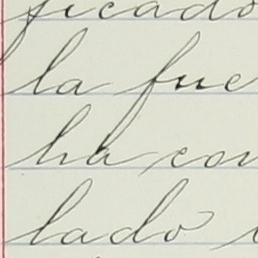 ficado
la fue
ha con
lado